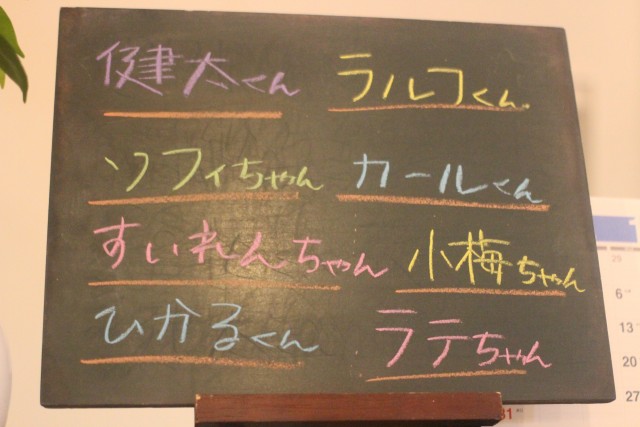 健太くん ラルフくん
ソフィちゃん カールくん
すいれんちゃん 小梅ちゃん
ひかるくん ラテちゃん
29
6
13
20
27
31